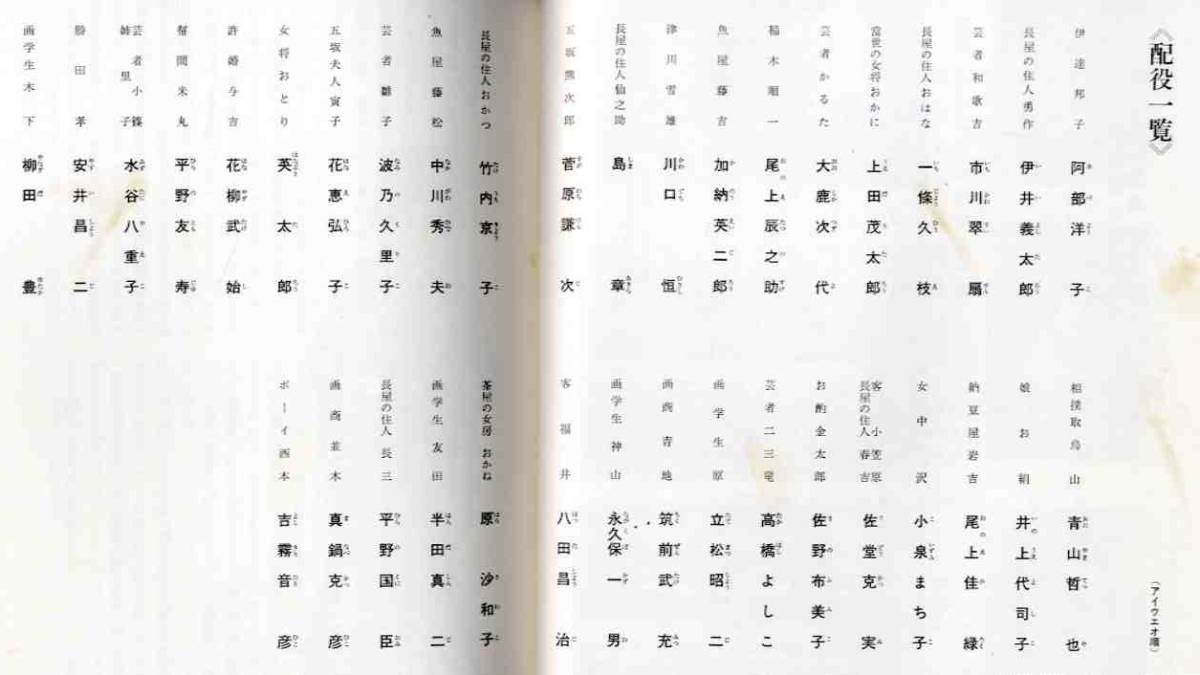 《配役一覧》
(アイウエオ順)
伊達邦子 阿部洋子
長屋の住人勇作 伊井義太郎
芸者和歌吉 市川翠扇
長屋の住人おはな 一條久枝
當世の女将おかに 上田茂太郎
芸者かるた 大鹿次代
稲木順一 尾上辰之助
魚屋藤吉 加納英二郎
津川雪雄 川口恒
長屋の住人仙之助 島章
五坂熊次郎 菅原謙次
長屋の住人おかつ 竹内京子
魚屋藤松 中川秀夫
芸者雛子 波乃久里子
五坂夫人寅子 花恵弘子
女将おとり 英太郎
許婚与吉 花柳武始
幇間米丸 平野友寿
芸者小篠
姉里子 水谷八重子
勝田孝 安井昌二
画学生木下 柳田豊
相撲取烏山 青山哲也
娘お絹 井上代司子
納豆屋岩吉 尾上佳緑
女中沢 小泉まち子
客小笠原
長屋の住人春吉 佐堂克実
お酌金太郎 佐野布美子
芸者二三竜 高橋よしこ
画学生原 立松昭二
画商青地 筑前武充
画学生神山 永久保一男
客福井 八田昌治
茶屋の女房おかね 原沙和子
画学生友田 半田真二
長屋の住人長三 平野国臣
画商並木 真鍋克彦
ボーイ西本 吉霧音彦